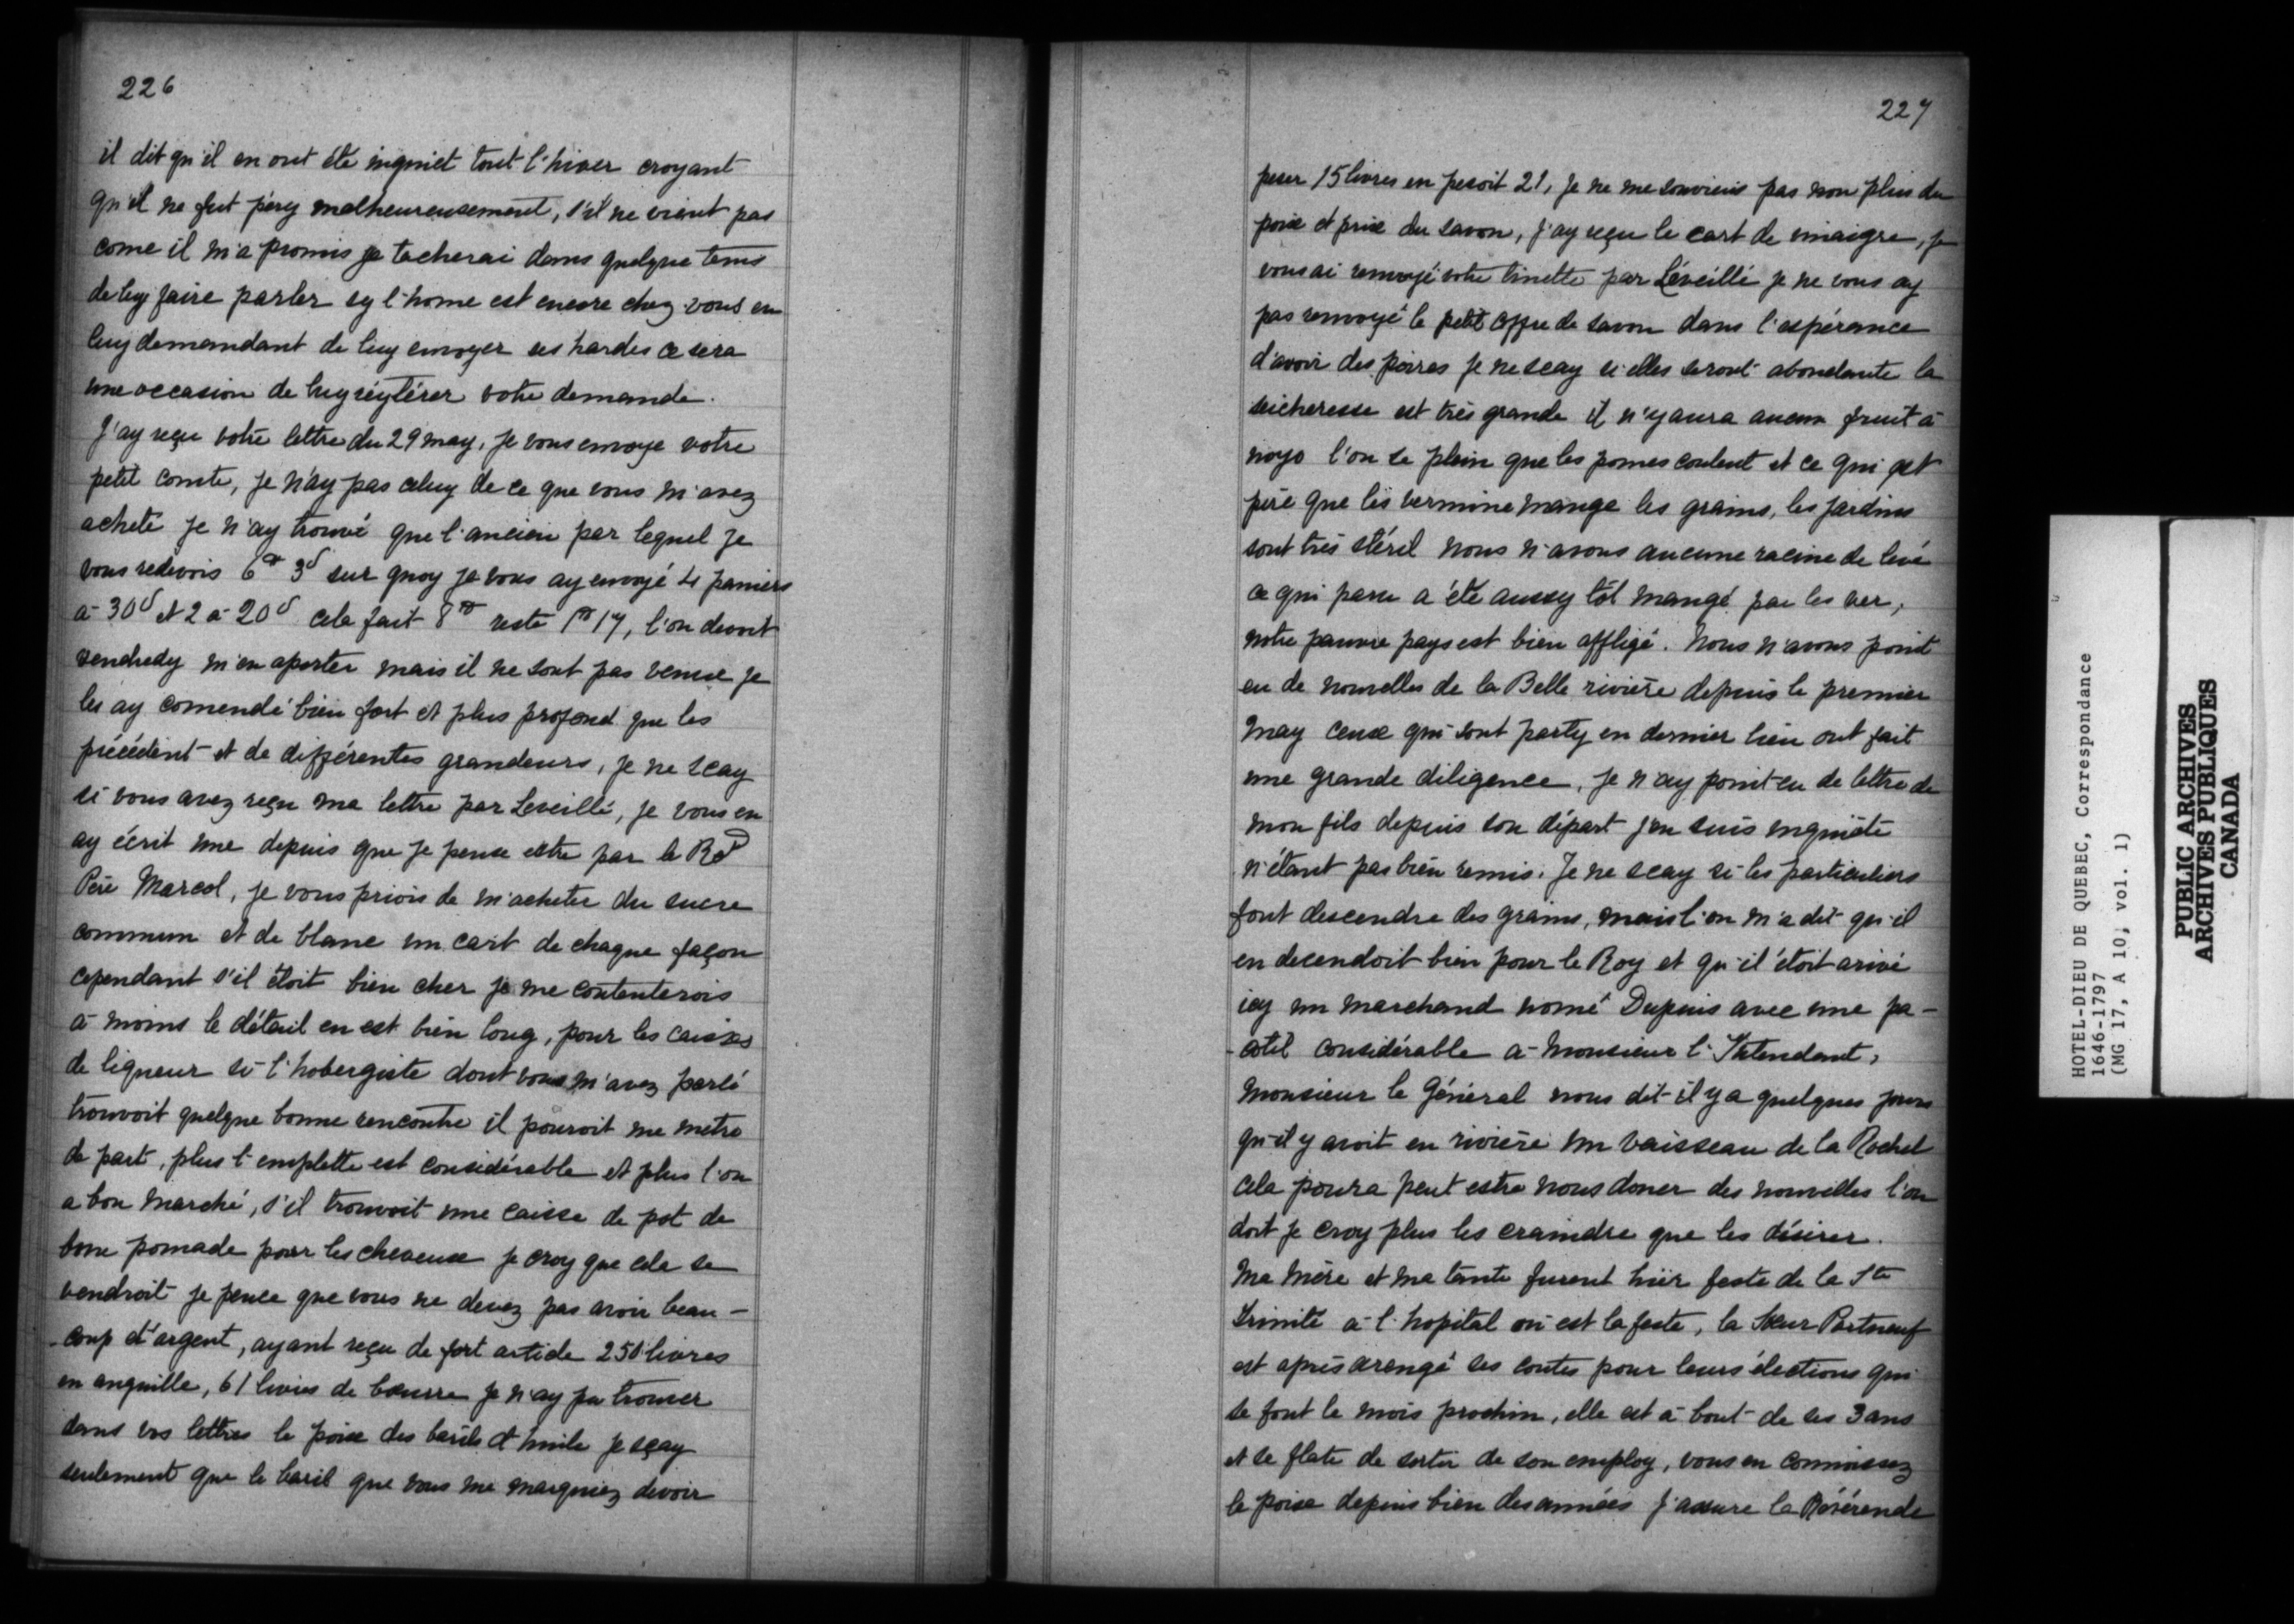 226
il dit qu'il en ont été inquiet tout l'hiver croyant
qu'il ne fut péry malheureusement, s'il ne vient pas
come il m'a promis je tacherai dans quelque tems
de luy faire parler sy l'home est encore chez vous en
luy demandant de luy envoyer ses hardes ce sera
une occasion de luy réytérer votre demande.
J'ay reçu votre lettre du 29 may, je vous envoye votre
petit comte, je n'ay pas celuy de ce que vous m'avez
acheté je n'ay trouvé que l'ancien par lequel je
vous redevois 6 3 sur quoy je vous ay envoyé 4 paniers
à 30 et 2 à 20 cela fait 8 reste 1 17, l'on devoit
vendredy m'en aporter mais il ne sont pas venue je
les ay comendé bien fort et plus profond que les
précédent et de différentes grandeurs, je ne scay
si vous avez reçu ma lettre par Leveillé, je vous en
ay écrit une depuis que je pense estre par le Rd
Père Marcol, je vous priois de m'acheter du sucre
commun et de blanc un cart de chaque façon
cependant s'il étoit bien cher je me contenterois
à moins le détail en est bien long, pour les caisses
de liqueur si l'hobergiste dont vous m'avez parlé
trouvoit quelque bonne rencontre il pouroit me metre
de part, plus l'emplette est considérable et plus l'on
a bon marché, s'il trouvoit une caisse de pot de
bone pomade pour les cheveux je croy que cela se
vendroit je pence que vous ne devez pas avoir beau-
-coup d'argent, ayant reçu de fort article 250 livres
en anguille, 61 livres de beurre je n'ay pu trouver
dans vos lettres le poise des barils d'huile je sçay
seulement que le baril que vous me marquiez devoir
227
peser 15 livres en pesoit 21, je ne me souviens pas non plus du
poise et prise du savon, j'ay reçu le cart de vinaigre, je
vous ai renvoyé votre tinette par Léveillé je ne vous ay
pas renvoyé le petit coffre de savon dans l'espérance
d'avoir des poires je ne scay si elles seront abondante la
seicheresse est très grande il n'y aura aucun fruit à
noyo l'on se plein que les pomes coulent et ce qui est
pire que les vermine mange les grains, les jardins
sont très stéril nous n'avons aucune racine de levé
ce qui paru a été aussy tôt mangé par les ver,
notre pauvre pays est bien affligé. Nous n'avons point
eu de nouvelles de la Belle rivière depuis le premier
may ceux qui sont party en dernier lieu ont fait
une grande diligence, je n'ay point eu de lettre de
mon fils depuis son départ j'en suis inquiète
n'étant pas bien remis. Je ne scay si les particuliers
font descendre des grains, mais l'on m'a dit qu'il
en decendoit bien pour le Roy et qu'il étoit arivé
icy un marchand nomé Dupuis avec une pa-
-cotil considérable à Monsieur l'Intendant,
Monsieur le Général nous dit il y a quelques jours
qu'il y avoit en rivière un vaisseau de la Rochel
cela poura peut estre nous doner des nouvelles l'on
doit je croy plus les craindre que les désirer.
Ma mère et ma tante furent hier feste de la Ste
Trinité à l'hopital où est la feste, la Sœur Portneuf
est après arengé ses contes pour leurs élections qui
se font le mois prochin, elle est à bout de ses 3 ans
et se flate de sortir de son employ, vous en connoissez
le poise depuis bien des années j'assure la Révérende
HOTEL-DIEU DE QUEBEC, Correspondance
1646-1797
(MG 17, A 10, vol. 1)
PUBLIC ARCHIVES
ARCHIVES PUBLIQUES
CANADA